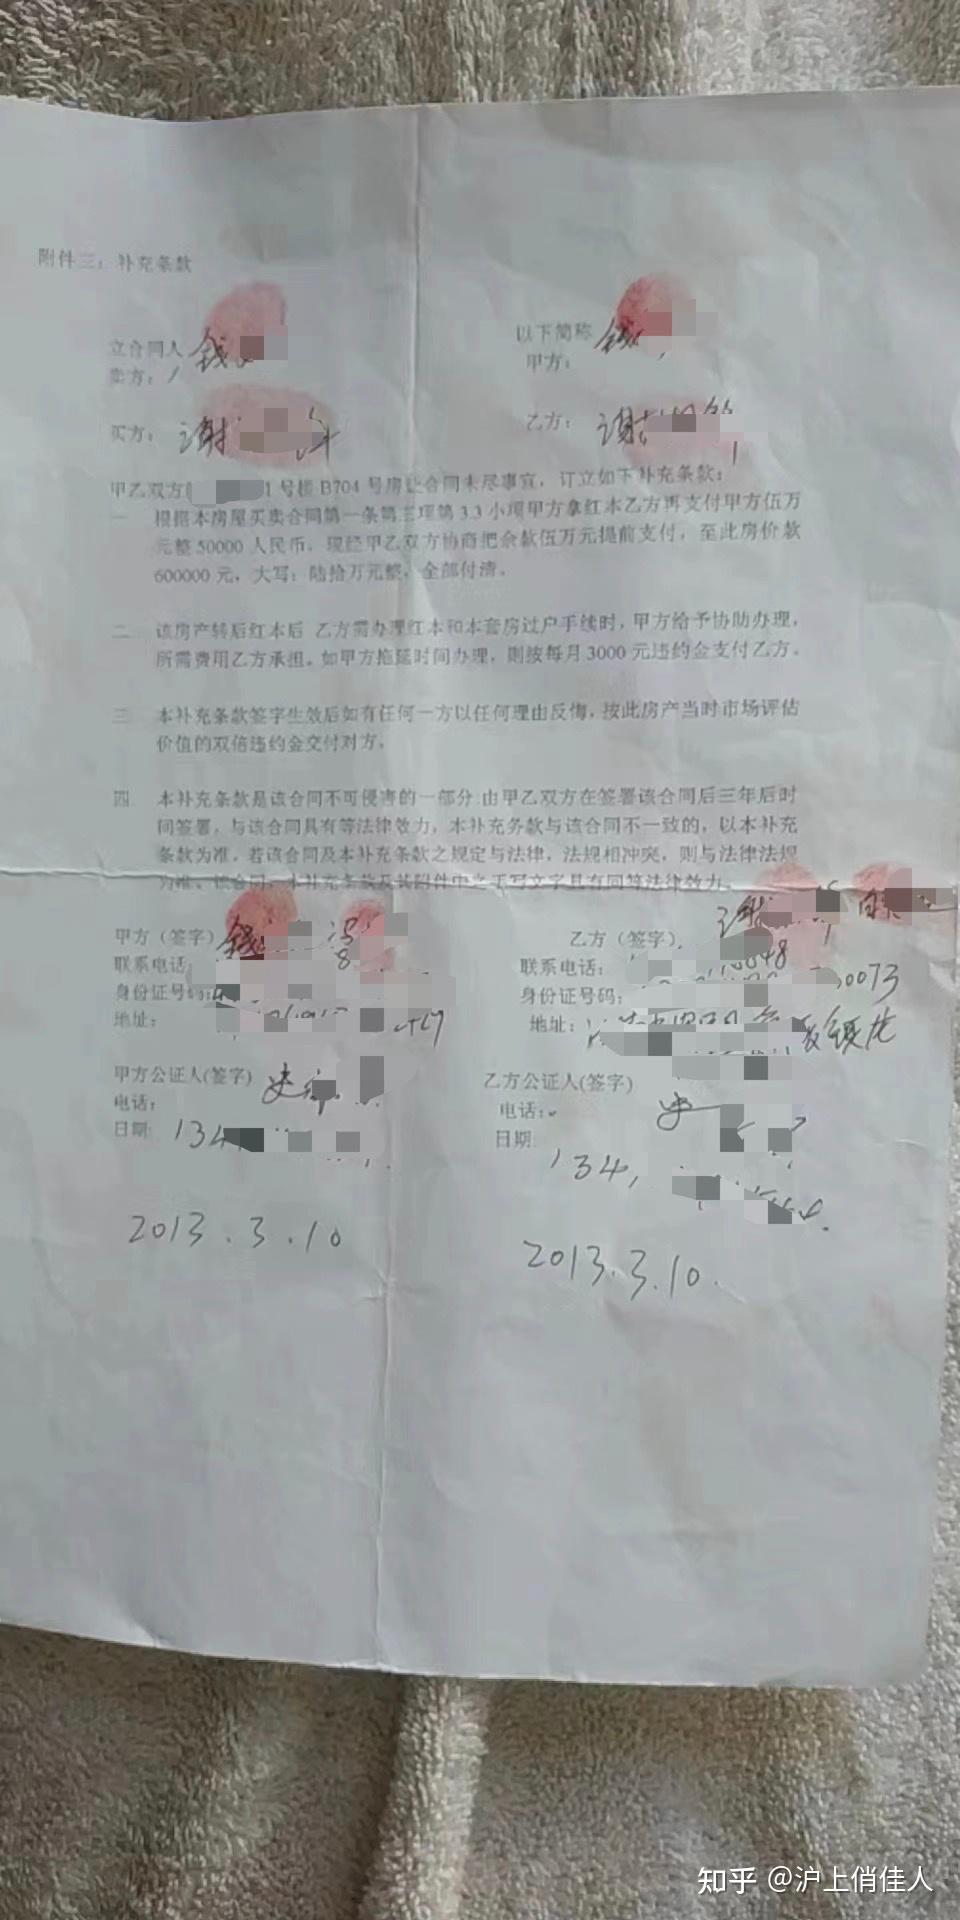 附件三：补充条款
立合同人 钱
卖方：
以下简称
甲方： 钱
买方： 谢
乙方： 谢
甲乙双方 1号楼B704号房让合同未尽事宜，订立如下补充条款：
一 根据本房屋买卖合同第一条第三项第3.3小项甲方拿红本乙方再支付甲方伍万
元整50000人民币，现经甲乙双方协商把余款伍万元提前支付，至此房价款
600000元，大写：陆拾万元整，全部付清。
二 该房产转后红本后 乙方需办理红本和本套房过户手续时，甲方给予协助办理，
所需费用乙方承担。如甲方拖延时间办理，则按每月3000元违约金支付乙方。
三 本补充条款签字生效后如有任何一方以任何理由反悔，按此房产当时市场评估
价值的双倍违约金交付对方。
四 本补充条款是该合同不可侵害的一部分由甲乙双方在签署该合同后三年后时
间签署，与该合同具有等法律效力，本补充务款与该合同不一致的，以本补充
条款为准，若该合同及本补充条款之规定与法律，法规相冲突，则与法律法规
为准。该合同，本补充条款及其附件中之手写文字具有同等法律效力。
甲方（签字） 钱
联系电话： 8
身份证号码：
地址：
乙方（签字）. 谢
联系电话： 48
身份证号码： 0073
地址： 镇龙
甲方公证人(签字) 史
电话：
日期: 134
乙方公证人(签字) 史
电话：
日期: 134
2013.3.10
2013.3.10.
知乎 @沪上俏佳人